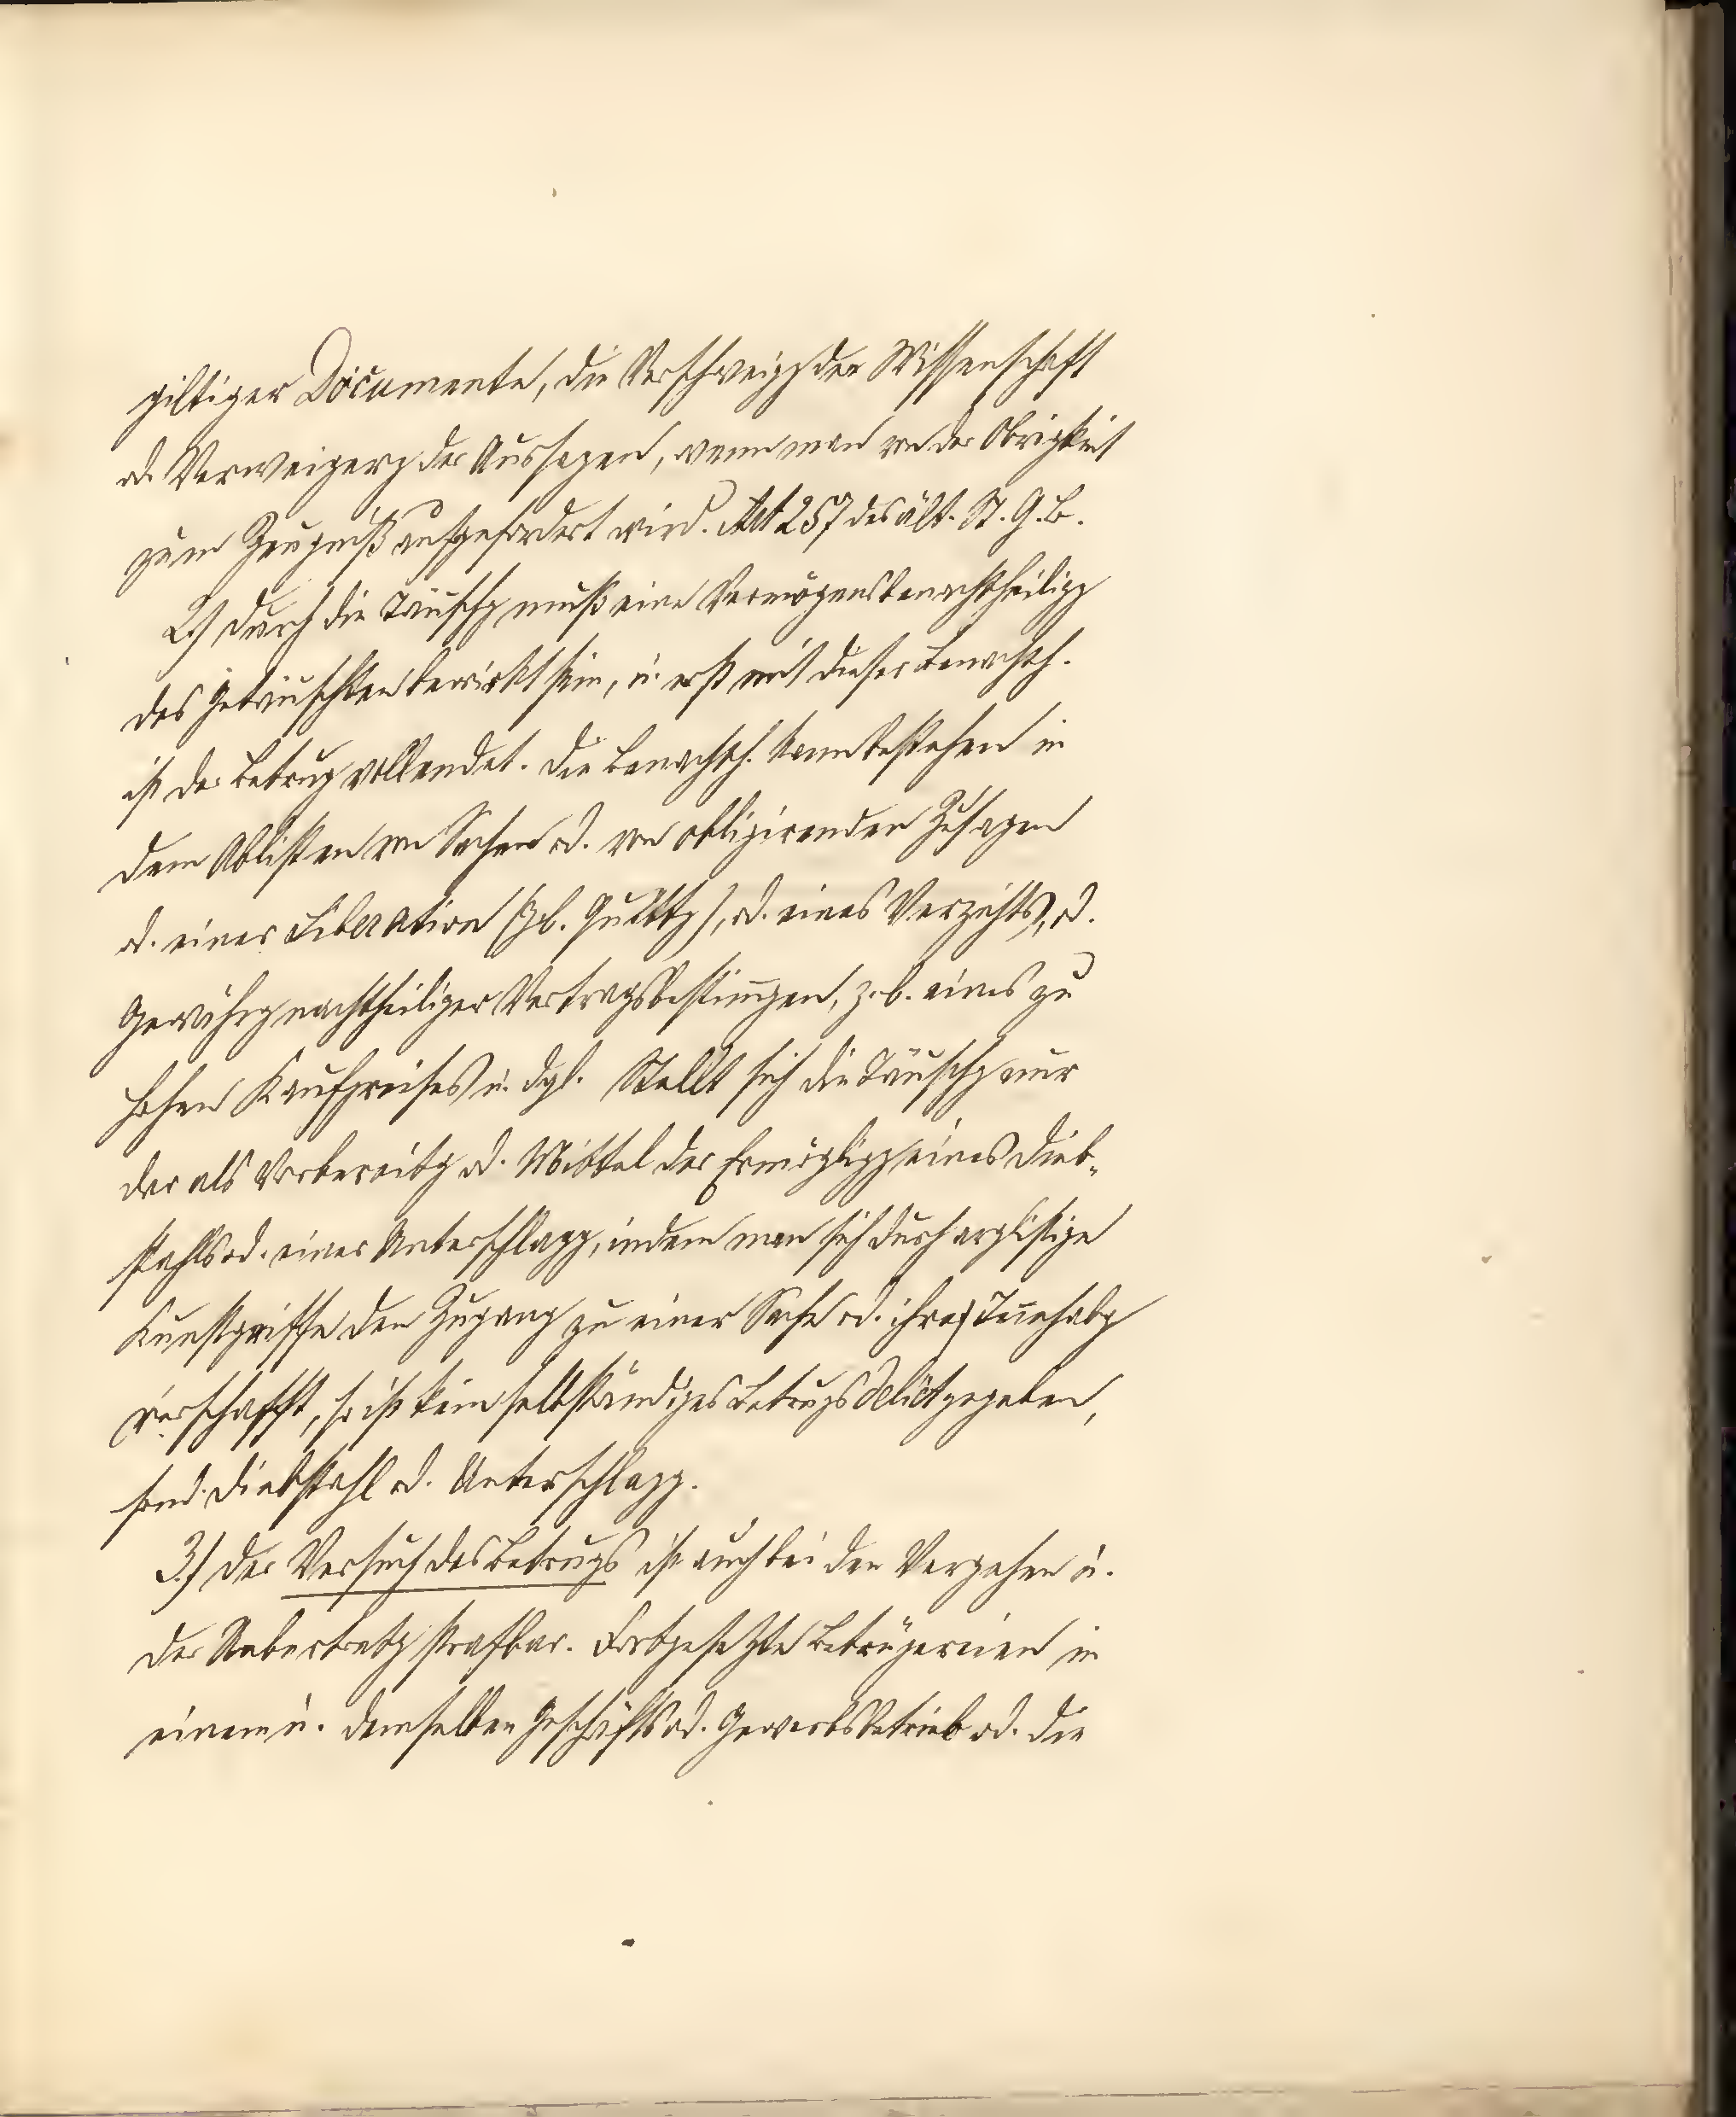 giltiger Documente, die Verschweigg der Wissenschaft
od. Verweigerg der Aussagen, wenn man von der Obrigkeit
zum Zeugniß aufgefordert wird. Art 257 des ält. St. G. B.
2.) Durch die Täuschg muß eine Vermögensbenachtheiligg
des Getäuschten bewirkt sein, u. erst mit dieser Benachth.
ist der Betrug vollendet. Die Benachth. kann bestehen in
dem Ablisten von Sachen od. von obligirenden Zusagen
od. einer Liberation (z. b. Quittg), od. eines Verzichts, od.
Gewährg nachtheiliger Vertragsbestim̄gen, z. b. eines zu
hohen Kaufpreises u. dgl. Stellt sich die Täuschg nur
der als Vorbereitg od. Mittel der Ermöglichg eines Dieb-
stahls od. einer Unterschlagg, indem man sich durch arglistige
Kunstgriffe den Zugang zu einer Sache od. ihre In̄ehabg
verschafft, so ist kein selbständiges Betrugsdelict gegeben,
sond. Diebstahl od. Unterschlagg.
3.) Der Versuch des Betrugs ist auch bei den Vergehen u.
der Uebertretg strafbar. Fortgesetzte Betrügereien in
einem u. demselben Geschäfts od. Gewerbsbetrieb od. die